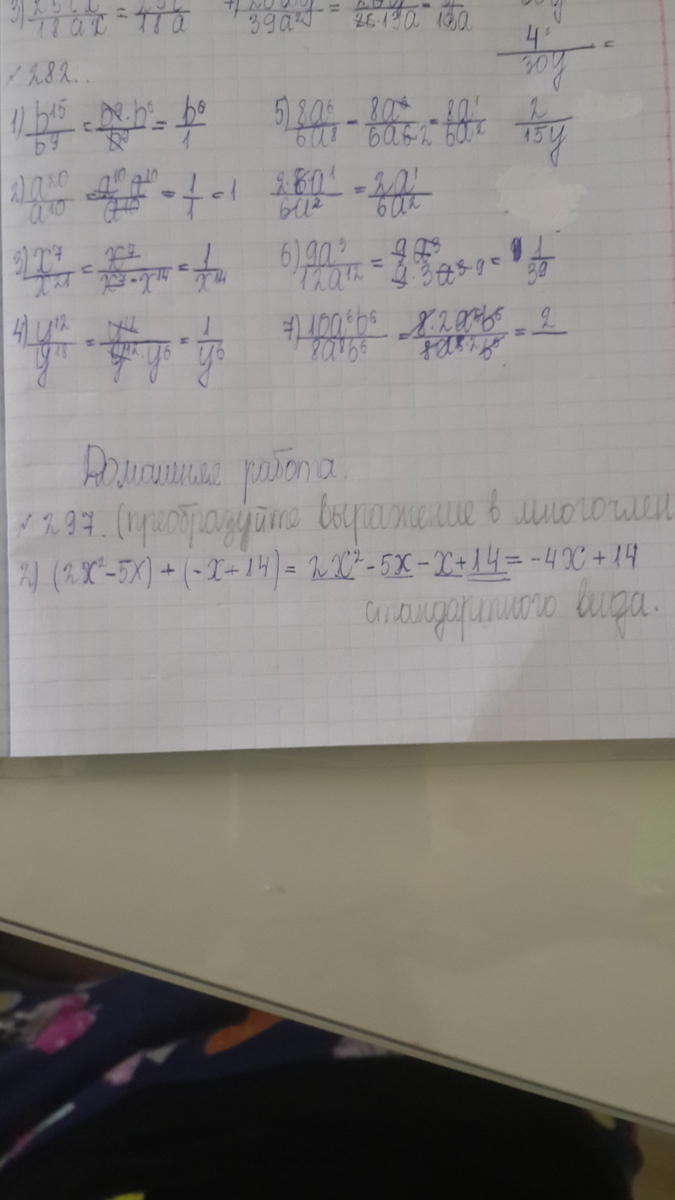 18ax = 18a
39a²
4
30y =
№ 282..
1) b¹⁵/b⁹ = b⁹·b⁶/b⁹ = b⁶/1
5) 8a⁶/6a⁸ = 8a⁶/6a6·2 = 8a¹/6a²
2/15y
2) a²⁰/a¹⁰ = a¹⁰·a¹⁰/a¹⁰ = 1/1 = 1
2·8a¹/6a² = 2a¹/6a²
3) x⁷/x²¹ = x⁷/x⁷·x¹⁴ = 1/x¹⁴
6) 9a³/12a¹² = 9a³/9·3a³·9 = 1/39
4) y¹²/y¹⁸ = y¹²/y¹²·y⁶ = 1/y⁶
7) 16a⁶b⁶/8a⁸b⁶ = 8·2a⁶b⁶/8a⁶·²b⁶ = 2
Домашнее работа.
№ 297. (преобразуйте выражение в многочлен
2) (2x²-5x)+(-x+14) = 2x²-5x-x+14 = -4x+14
стандартного вида.